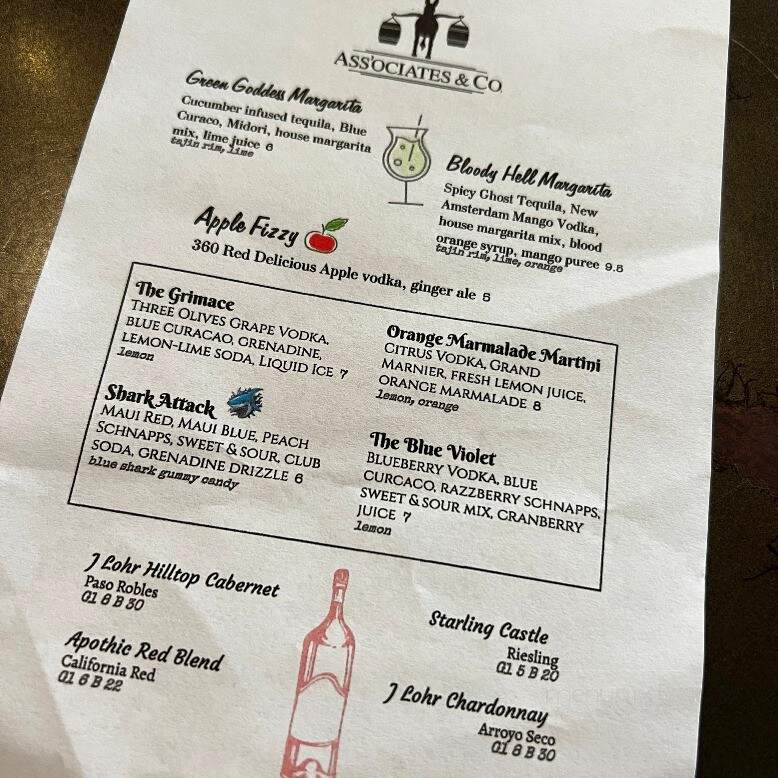 ASSOCIATES & CO
Green Goddess Margarita
Cucumber infused tequila, Blue
Curaco, Midori, house margarita
mix, lime juice 6
tajin rim, lime
Bloody Hell Margarita
Spicy Ghost Tequila, New
Amsterdam Mango Vodka,
house margarita mix, blood
orange syrup, mango puree 9.5
tajin rim, lime, orange
Apple Fizzy
360 Red Delicious Apple vodka, ginger ale 5
The Grimace
THREE OLIVES GRAPE VODKA,
BLUE CURACAO, GRENADINE,
LEMON-LIME SODA, LIQUID ICE 7
lemon
Orange Marmalade Martini
CITRUS VODKA, GRAND
MARNIER, FRESH LEMON JUICE,
ORANGE MARMALADE 8
lemon, orange
Shark Attack
MAUI RED, MAUI BLUE, PEACH
SCHNAPPS, SWEET & SOUR, CLUB
SODA, GRENADINE DRIZZLE 6
blue shark gummy candy
The Blue Violet
BLUEBERRY VODKA, BLUE
CURCACO, RAZZBERRY SCHNAPPS,
SWEET & SOUR MIX, CRANBERRY
JUICE 7
lemon
J Lohr Hilltop Cabernet
Paso Robles
Gl 8 B 30
Apothic Red Blend
California Red
Gl 6 B 22
Starling Castle
Riesling
Gl 5 B 20
J Lohr Chardonnay
Arroyo Seco
Gl 8 B 30